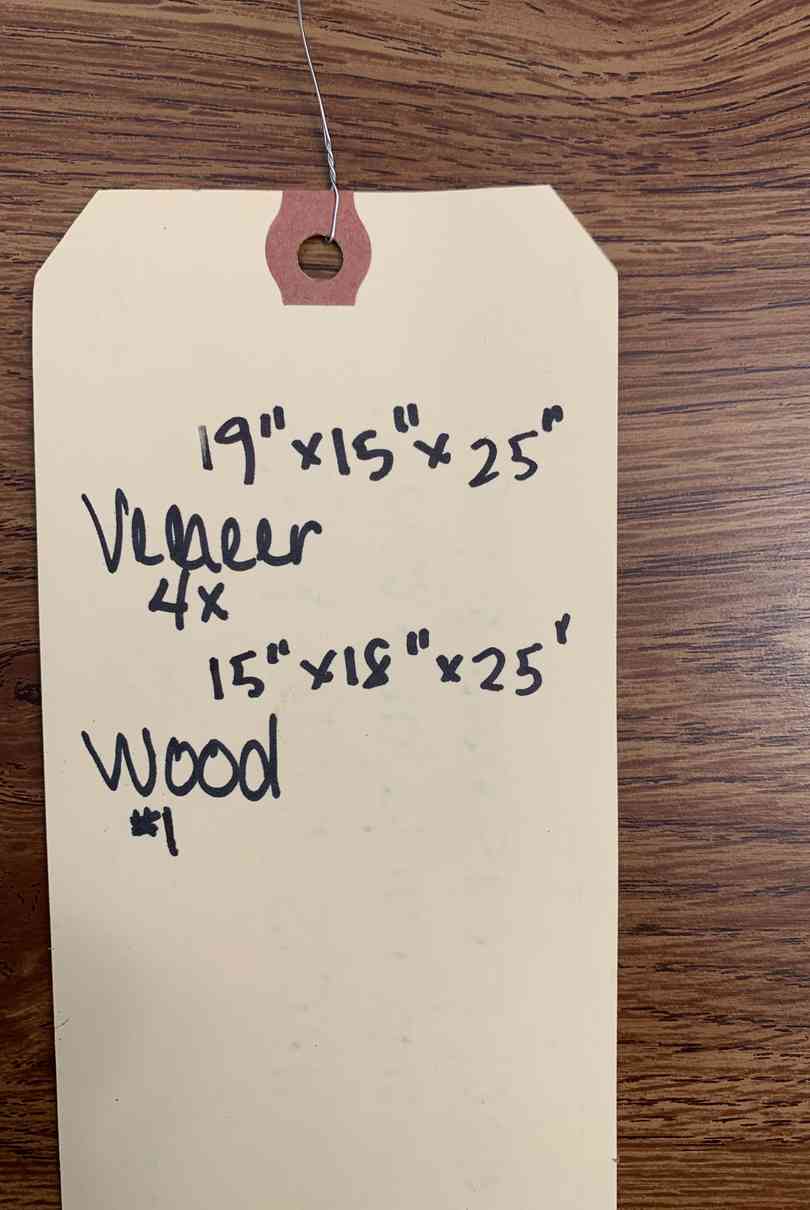 19"x15"x25"
Veneer
4x
15"x18"x25'
Wood
#1